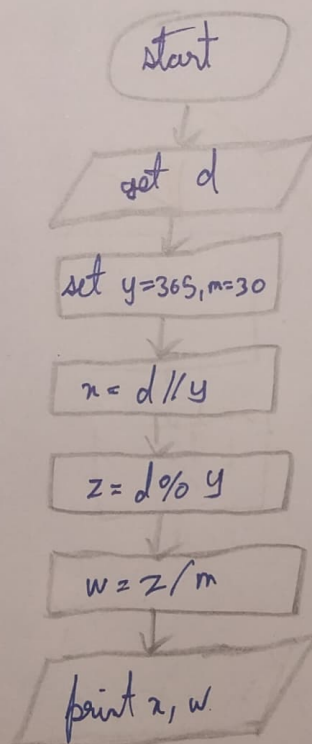 start
get d
set y=365, m=30
x = d//y
z = d% y
w = z/m
print x, w